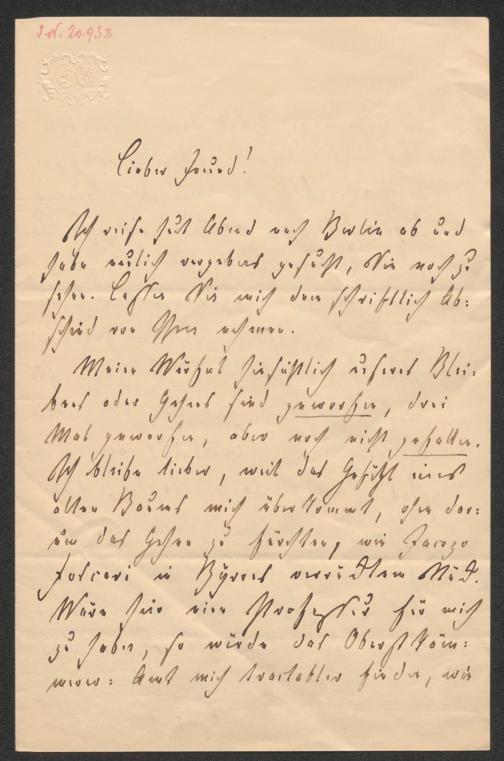 I.N. 20.938
Lieber Freund!
Ich reise heut Abend nach Berlin ab und
habe neulich vergebens gehofft, Sie noch zu
sehen. Lassen Sie mich denn schriftlich Ab-
schied von Ihnen nehmen.
Meine Würfel hinsichtlich unseres Blei-
bens oder Gehens sind geworfen, drei
Mal geworfen, aber noch nicht gefallen.
Ich bleibe lieber, weil das Gefühl eines
alten Baums mich überkommt, ohne dar-
um das Gehen zu fürchten, wie Jacopo
Foscari in Byrons
Wäre hier eine Professur für mich
zu haben, so würde das Oberstkäm-
merer-Amt mich tractabler finden, wie